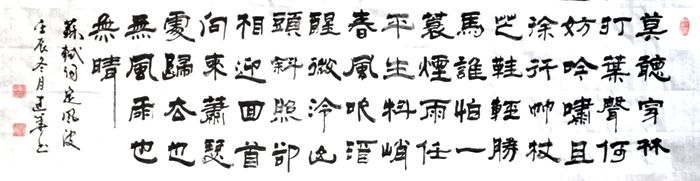 莫聽穿林
打葉聲何
妨吟嘯且
徐行竹杖
芒鞋輕勝
馬誰怕一
蓑煙雨任
平生料峭
春風吹酒
醒微冷山
頭斜照卻
相迎回首
向來蕭瑟
處歸去也
無風雨也
無晴
蘇軾詞定風波
壬辰冬月建书